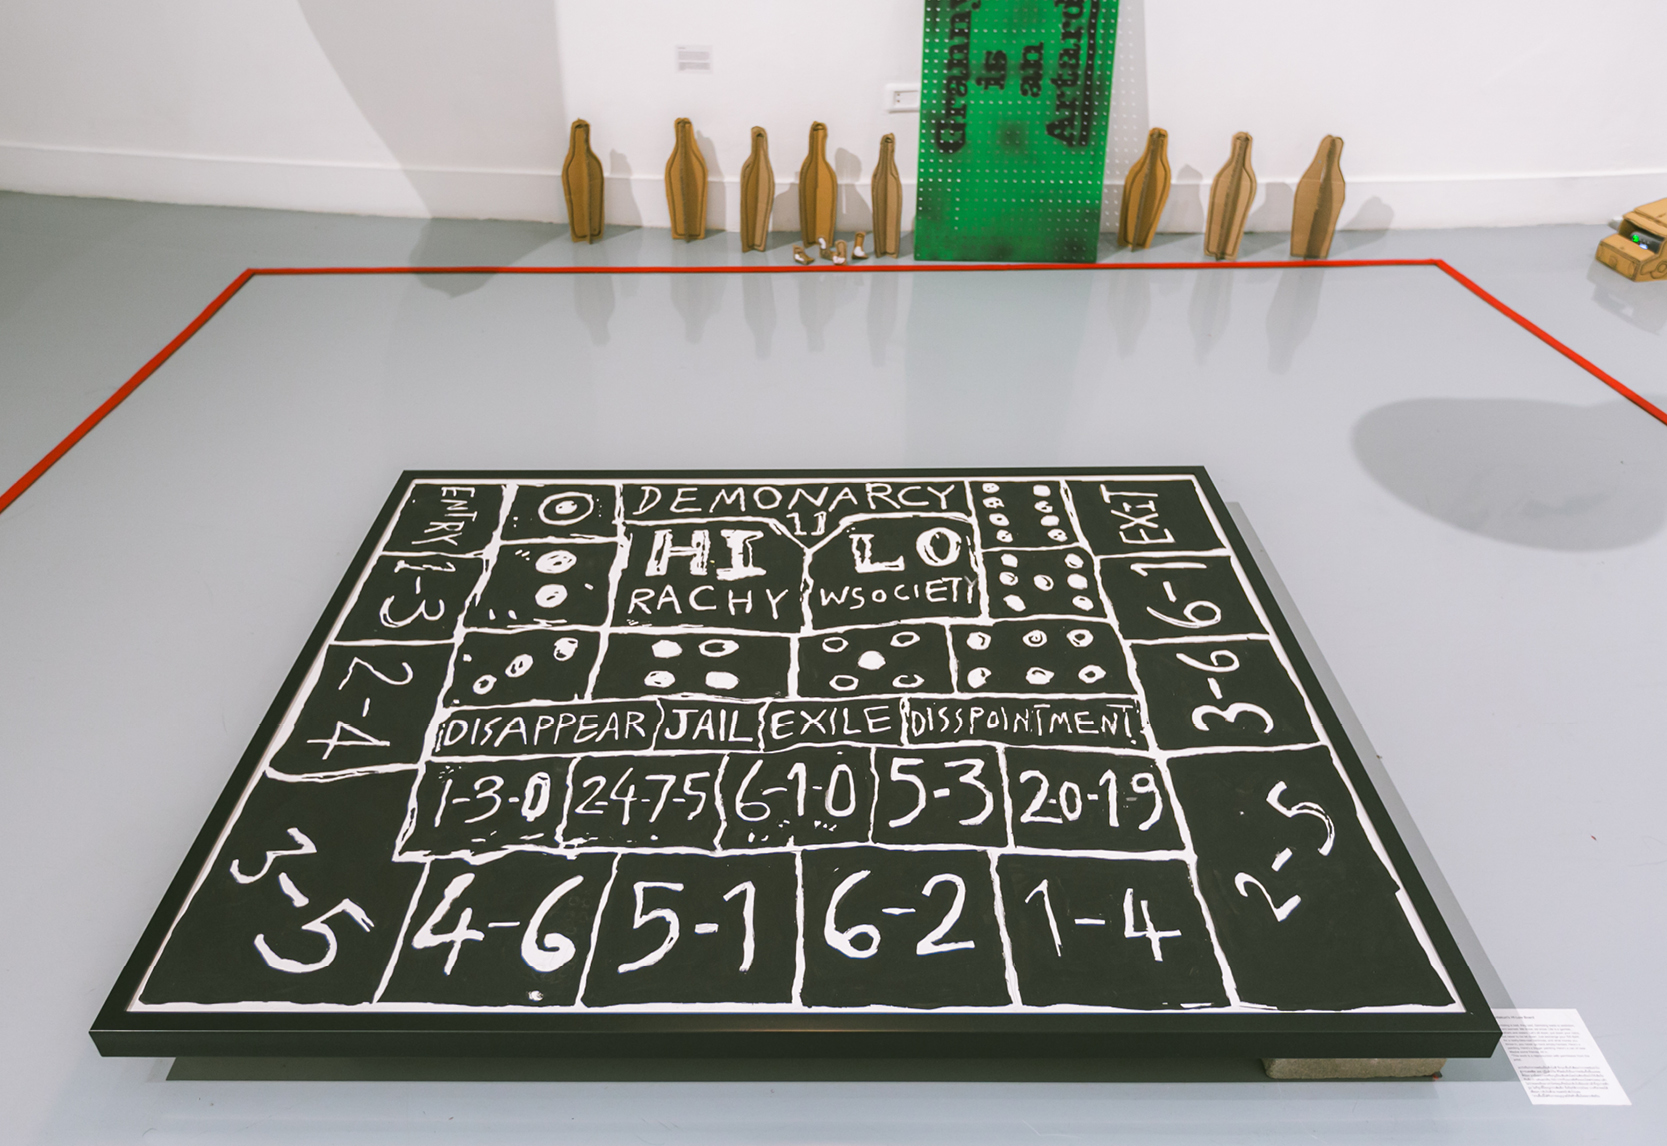 Granny
is
an
Artard
ENTRY
DEMONARCY
EXIT
11
HI
LO
RACHY
WSOCIETY
1-3
6-1
2-4
3-6
DISAPPEAR
JAIL
EXILE
DISSPOINTMENT
1-3-0
2-4-7-5
6-1-0
5-3
2-0-19
3-5
4-6
5-1
6-2
1-4
2-5